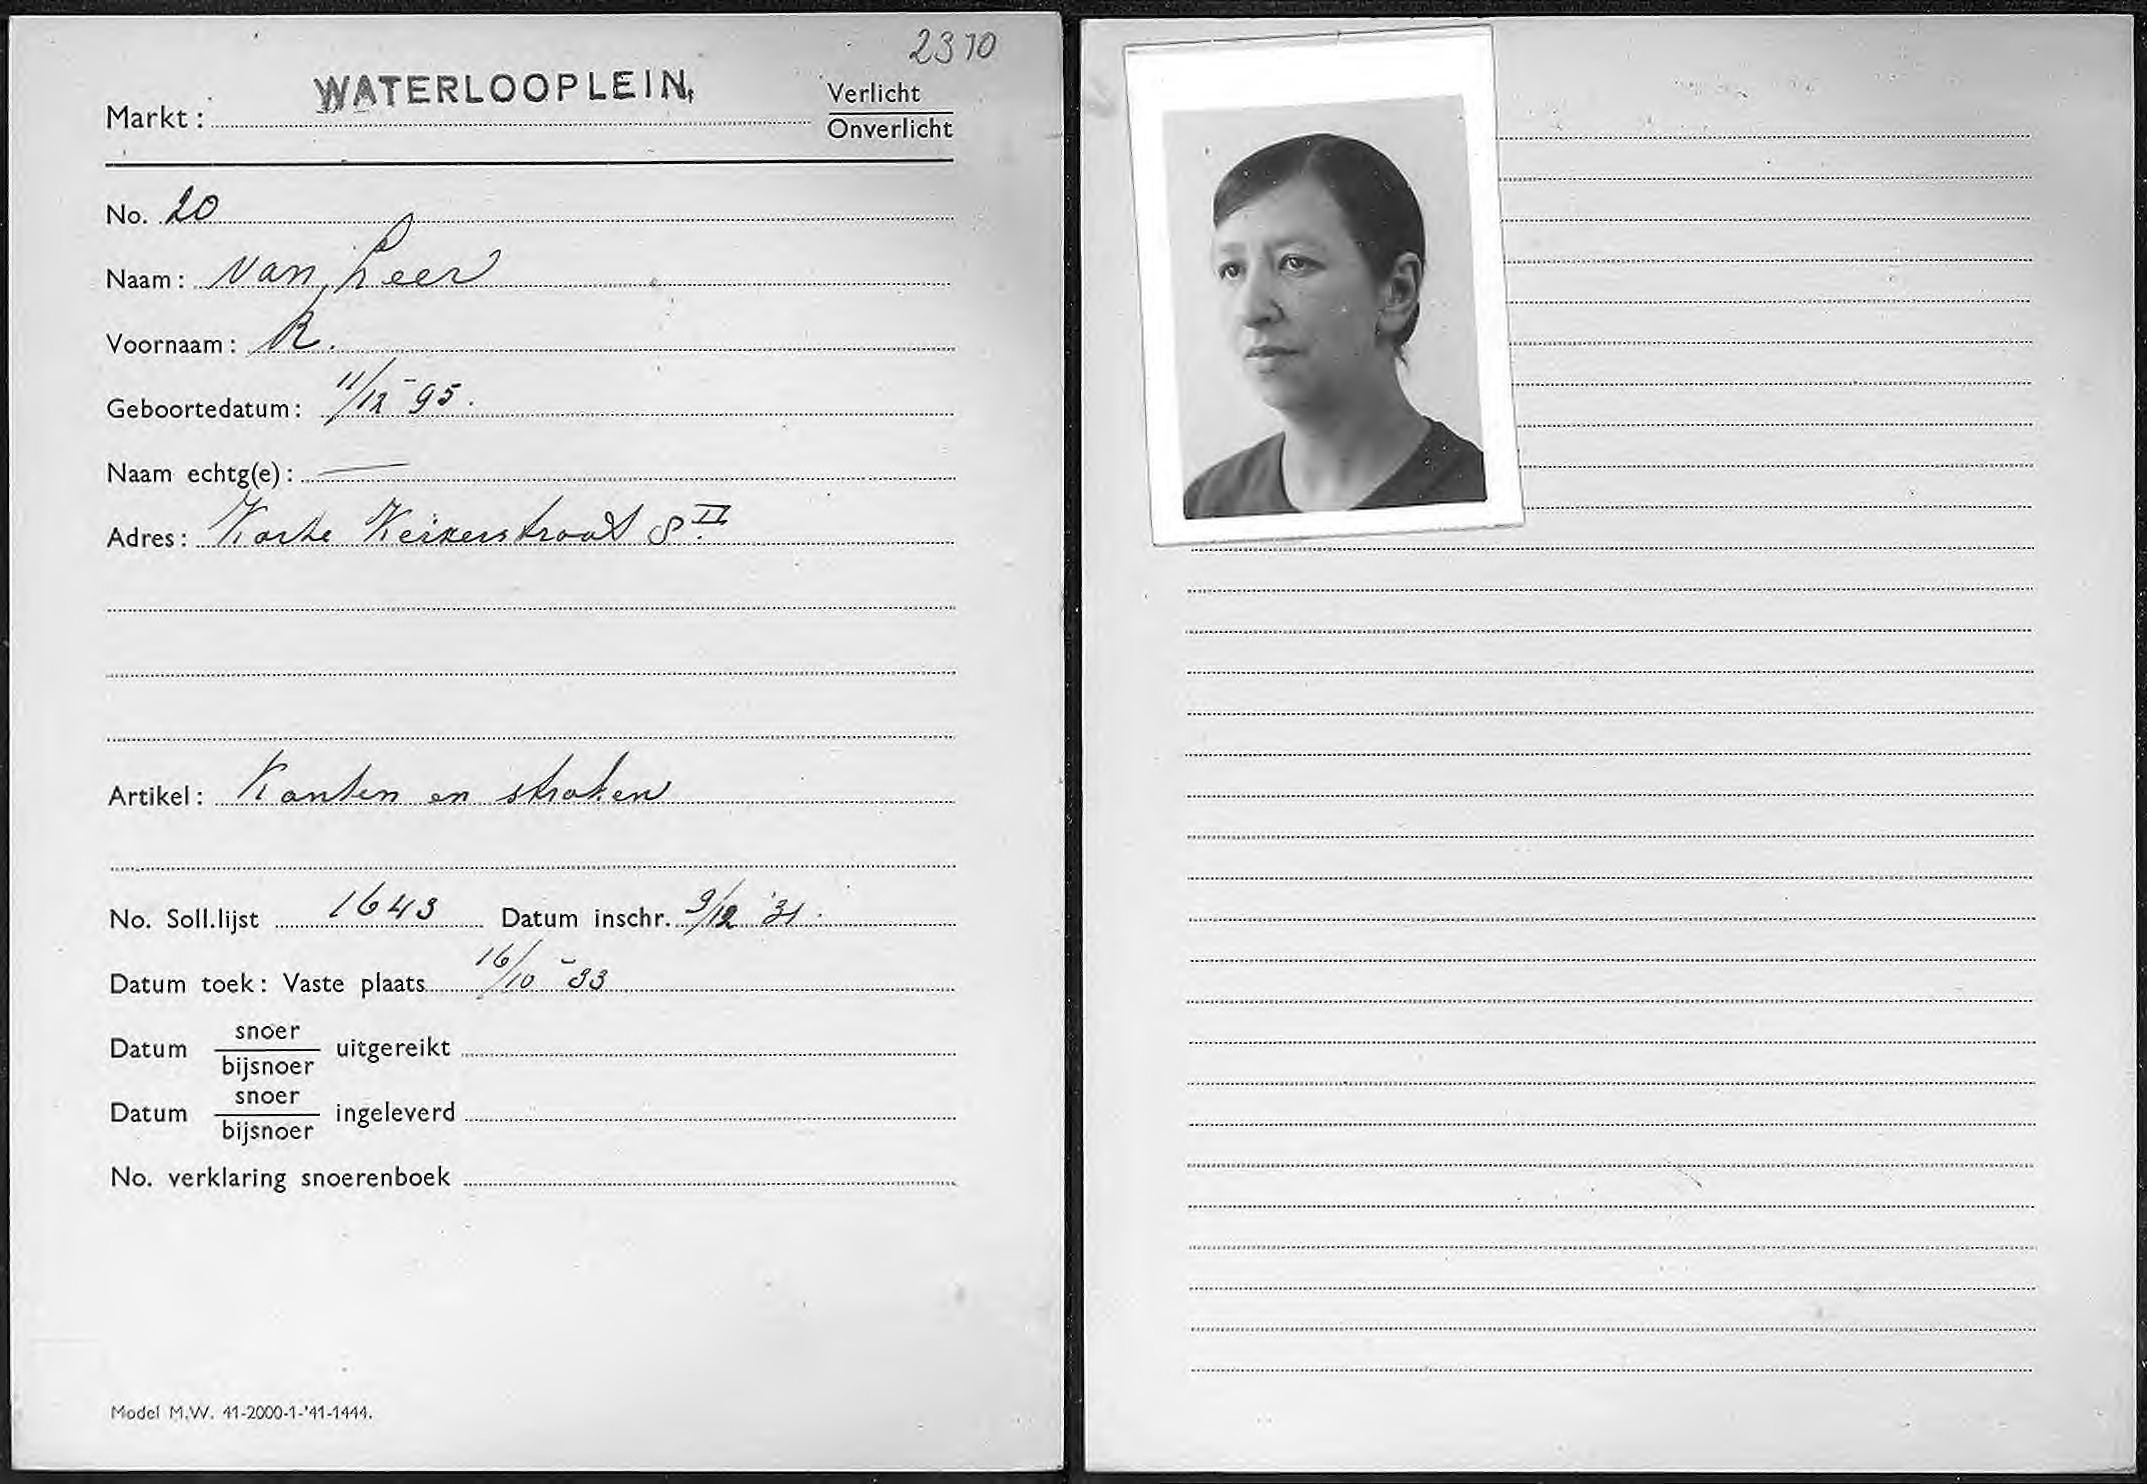 2310
Markt: WATERLOOPLEIN,
Verlicht
Onverlicht
No. 20
Naam: van Leer
Voornaam: R.
Geboortedatum: 11/12 - 95.
Naam echtg(e): —
Adres: Korte Keizerstraat 8 II
Artikel: Kanten en stroken
No. Soll.lijst 1643 Datum inschr. 3/12 '31.
Datum toek: Vaste plaats 16/10 - 33
Datum snoer/bijsnoer uitgereikt
Datum snoer/bijsnoer ingeleverd
No. verklaring snoerenboek
Model M.W. 41-2000-1-'41-1444.